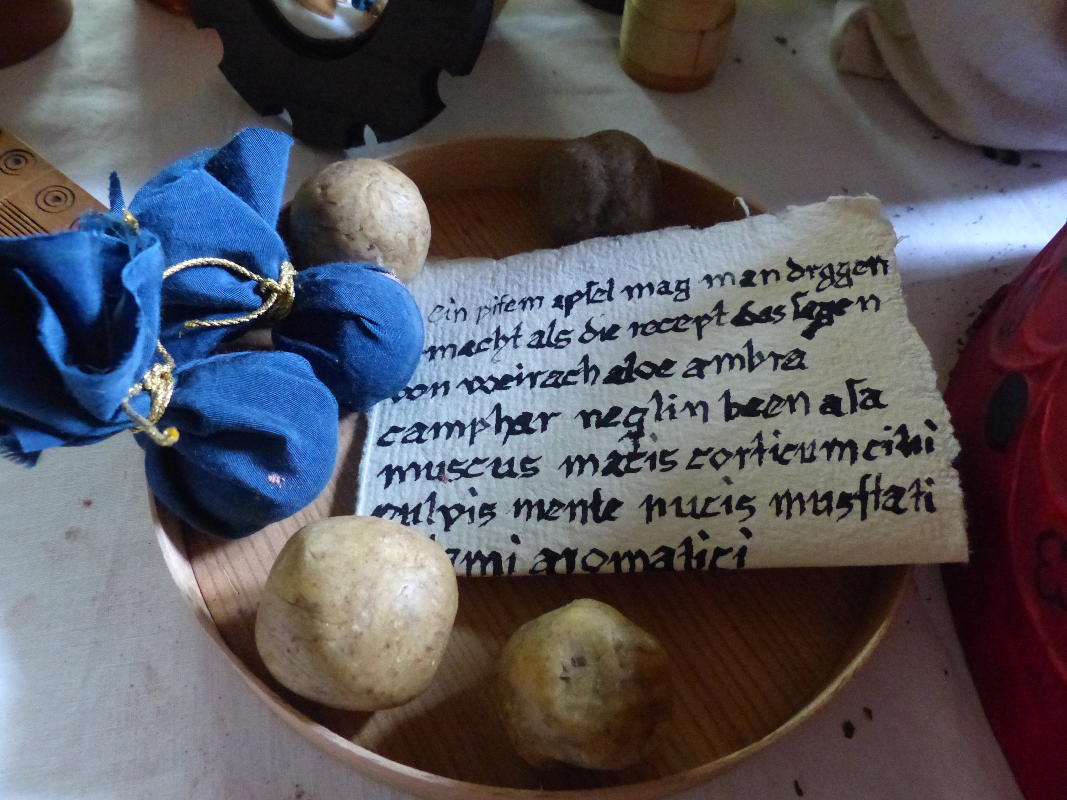 ein pisem apfel mag man drggen
macht als die recept das sagen
von weirach aloe ambra
camphar neglin been asa
muscus macis corticum citri
pulpis mente nucis musstati
aromatici